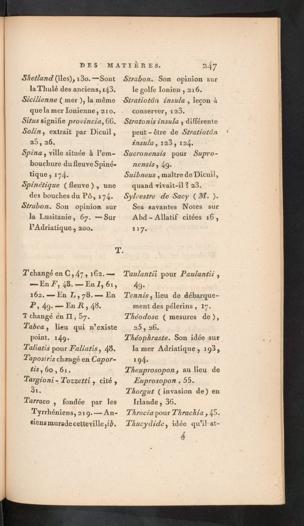 DES MATIÈRES. 247
Shetland (îles), 130. — Sont
la Thulé des anciens, 143.
Sicilienne (mer), la même
que la mer Ionienne, 210.
Situs signifie provincia, 66.
Solin, extrait par Dicuil,
25, 26.
Spina, ville située à l'em-
bouchure du fleuve Spiné-
tique, 174.
Spinétique (fleuve), une
des bouches du Pô, 174.
Strabon. Son opinion sur
la Lusitanie, 67. — Sur
l'Adriatique, 200.
Strabon. Son opinion sur
le golfe Ionien, 216.
Stratiotôn insula, leçon à
conserver, 123.
Stratonis insula, différente
peut-être de Stratiotôn
insula, 123, 124.
Sucronensis pour Supro-
nensis, 49.
Suibneus, maître de Dicuil,
quand vivait-il? 23.
Sylvestre de Sacy (M.).
Ses savantes Notes sur
Abd-Allatif citées 16,
117.
T.
T changé en C, 47, 162. —
— En F, 48. — En I, 61,
162. — En L, 78. — En
P, 49. — En R, 48.
T changé en Π, 57.
Tabea, lieu qui n'existe
point. 149.
Taliatis pour Faliatis, 48.
Taposiris changé en Capor-
tis, 60, 61.
Targioni-Tozzetti, cité,
31.
Tarraco, fondée par les
Tyrrhéniens, 219. — An-
siens murs de cette ville, ib.
Taulantii pour Paulantii,
49.
Tennis, lieu de débarque-
ment des pélerins, 17.
Théodose (mesures de),
25, 26.
Théophraste. Son idée sur
la mer Adriatique, 193,
194.
Theuprosopon, au lieu de
Euprosopon, 55.
Thorgut (invasion de) en
Irlande, 36.
Threcia pour Thrachia, 45.
Thucydide, idée qu'il at-